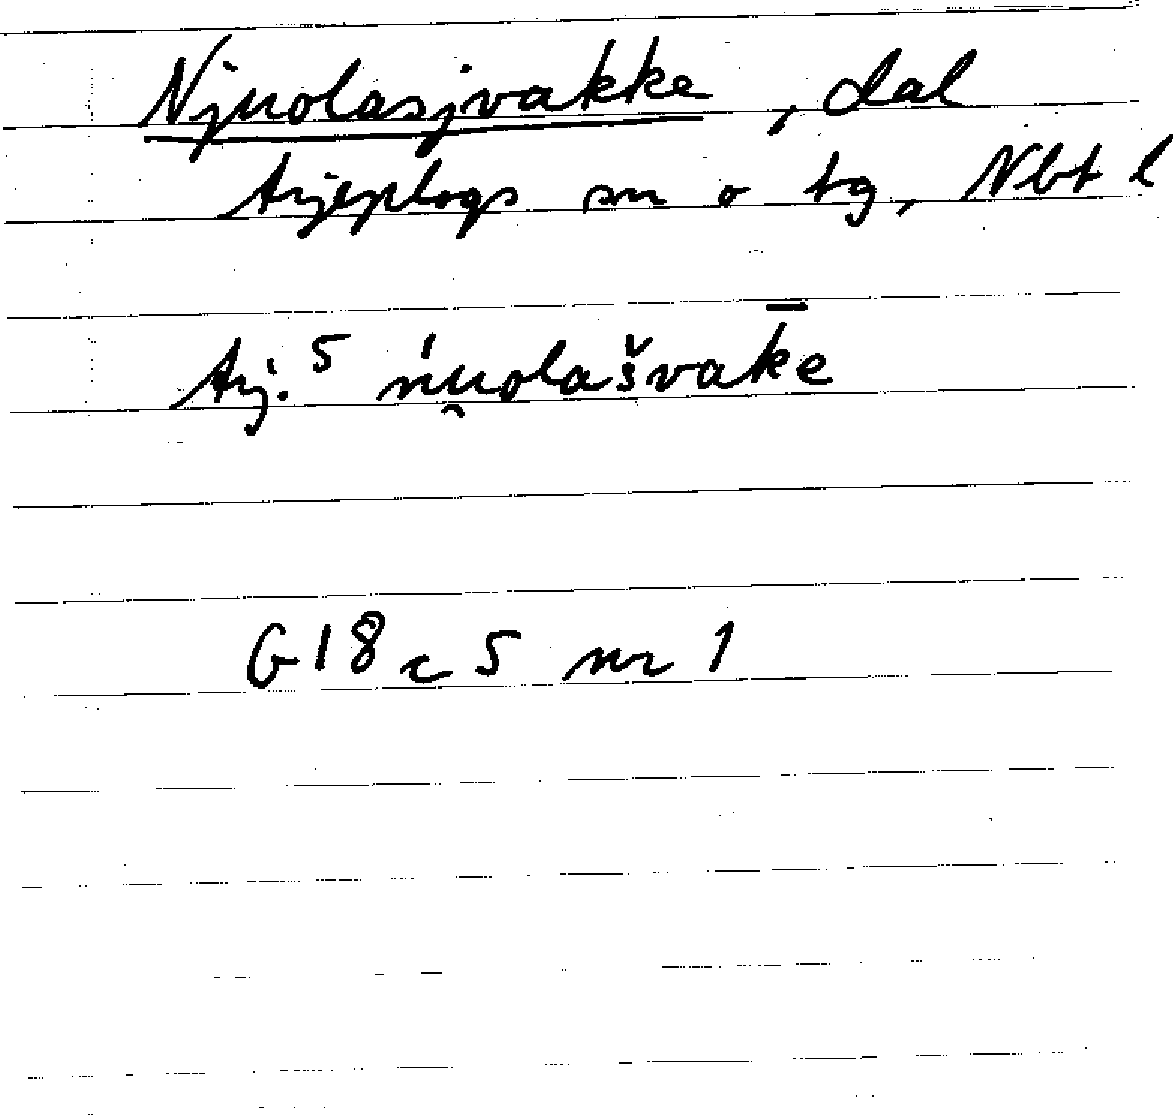 Njuolasjvakke, dal
Arjeplogs sn o tg, Nbt l
Arj.⁵ ńu̯olašvak̄e
G18 c 5 nr 1